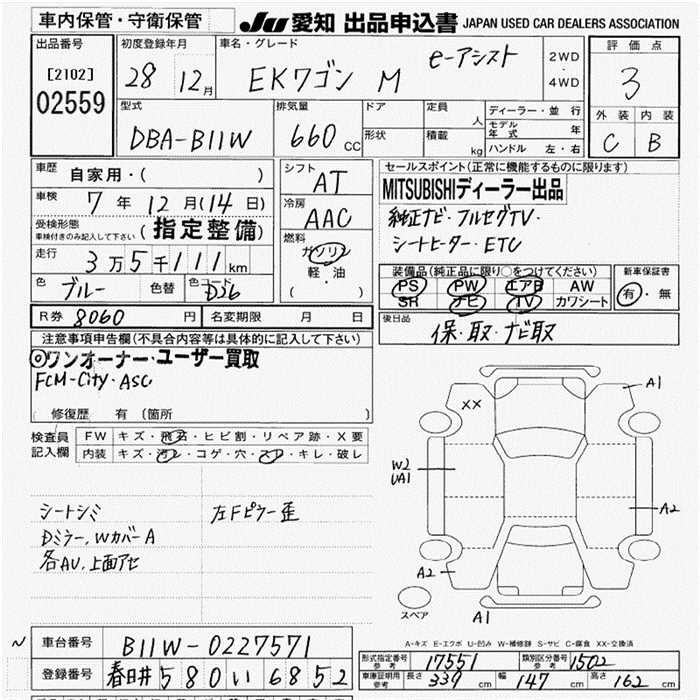 車内保管・守衛保管
JU 愛知 出品申込書 JAPAN USED CAR DEALERS ASSOCIATION
出品番号
[2102]
02559
初度登録年月
28 12月
車名・グレード
EKワゴン M e-アシスト
2WD
・
4WD
評価点
3
外装 内装
C B
型式
DBA-B11W
排気量
660cc
ドア
形状
定員 人
積載 kg
ディーラー・並行
モデル年式 年
ハンドル 左・右
車歴
自家用・( )
車検 7年12月(14日)
受検形態
車検付きのみ記入して下さい (指定整備)
走行 3万5千111km
色 ブルー 色替 色コード D26
シフト
AT
冷房
AAC
燃料
ガソリン
軽・油
( )
セールスポイント(正常に機能するものに限ります)
MITSUBISHIディーラー出品
純正ナビ・フルセグTV・
シートヒーター・ETC
装備品(純正品に限り○をつけてください)
PS PW エアB AW
SR ナビ TV カワシート
新車保証書
有・無
R券 8060円 名変期限 月 日
後日品
保・取・ナビ取
注意事項申告欄(不具合内容等は具体的に記入して下さい)
◎ワンオーナー・ユーザー買取
FCM-City・ASC
修復歴 有 (箇所 )
検査員
記入欄
FW キズ・飛石・ヒビ割・リペア跡・X要
内装 キズ・汚レ・コゲ・穴・スレ・キレ・破レ
シートシミ
Dミラー,WカバーA
各AU,上面アセ
左Fピラー歪
XX
A1
W2
UA1
A2
A2
A1
スペア
A-キズ E-エクボ U-凹み W-補修跡 S-サビ C-腐食 XX-交換済
車台番号 B11W-0227571
登録番号 春日井 580 い 6852
形式指定番号
参考 17551
類別区分番号
参考 1502
車庫証明用
参考 長さ 339cm 幅 147cm 高さ 162cm